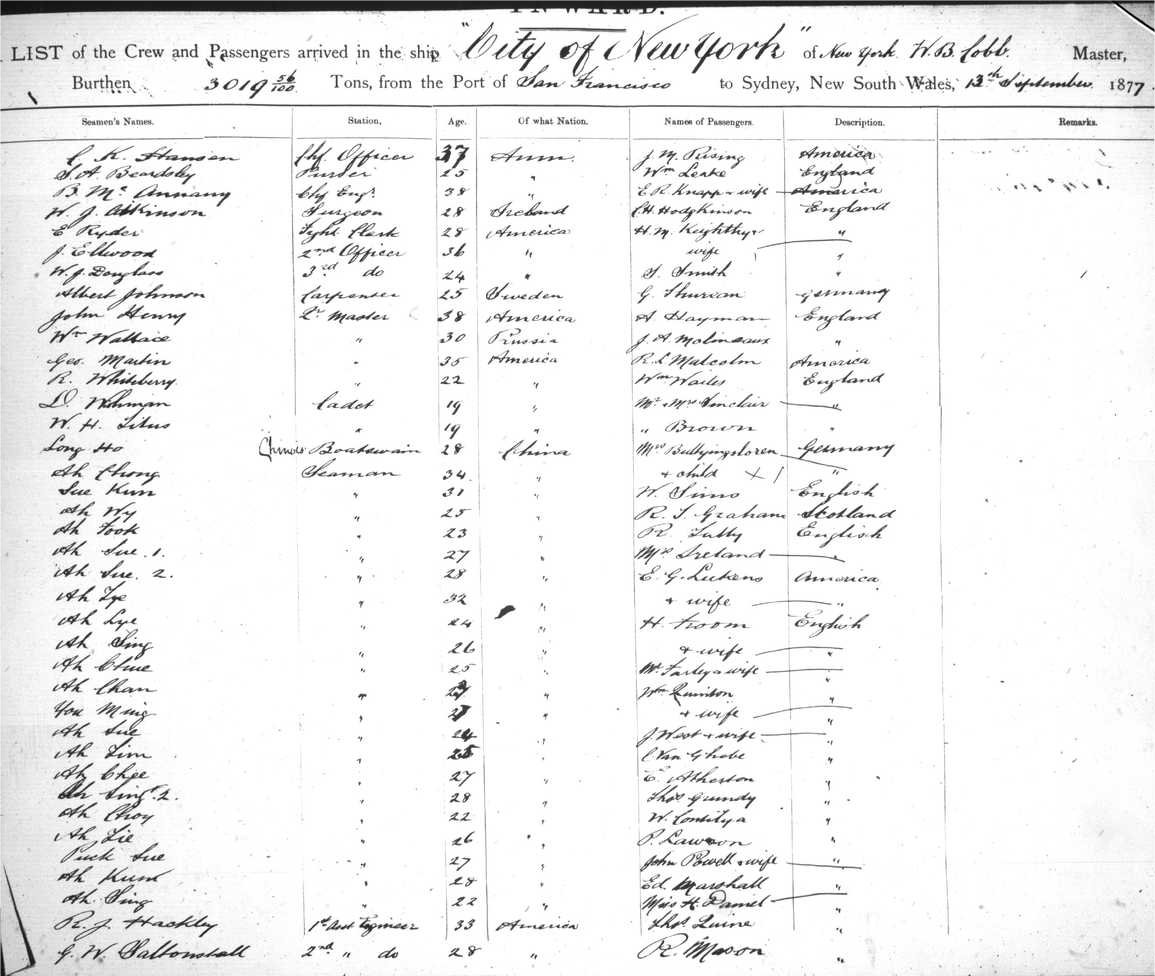 INWARD.
LIST of the Crew and Passengers arrived in the ship "City of New York" of New York W. B. Cobb Master,
Burthen 3019 56/100 Tons, from the Port of San Francisco to Sydney, New South Wales, 13th September 1877
Seamen's Names. Station, Age. Of what Nation. Names of Passengers. Description. Remarks.
C. K. Hansen Chf Officer 37 J. M. Rising America
S. A. Beardsley Purser 25 " Wm Leake England
B. Mc Annany Chf Engr. 38 " E. R. Knapp & wife America
W. J. Atkinson Surgeon 28 Ireland C. H. Hodgkinson England
E Ryder Fght Clerk 28 America H. M. "
J. Ellwood 2nd Officer 36 " wife "
W. J. Douglass 3rd do 24 " S. Smith "
Albert Johnson Carpenter 25 Sweden G. Germany
John Henry Qr Master 38 America A Hayman England
Wm Wallace " 30 Russia J. A. Molineaux "
Geo. Martin " 35 America R. L Malcolm America
R. Whiteberry " 22 " Wm Wailes England
D. Cadet 19 " Mr & Mrs Sinclair "
W. H. Titus " 19 " " Brown "
Long Ho Chinese Boatswain 28 China Mrs Germany
Ah Chong Seaman 34 " & child X / "
Sue Kun " 31 " W. Sims English
Ah Wy " 25 " R. S. Graham Scotland
Ah Fook " 23 " R. Tully English
Ah Sue. 1. " 27 " Mrs Ireland "
Ah Sue. 2. " 28 " E. G. Lukens America
Ah Lye " 32 " & wife "
Ah Lye " 24 " H. Froom English
Ah Sing " 26 " & wife "
Ah Chue " 25 " Mr Farley & wife "
Ah Chan " 27 " Wm "
You Ming " " & wife "
Ah Sue " 24 " J. West & wife "
Ah Lim " 25 " C Van "
Ah Chee " 27 " E. Atherton "
Ah Sing. 2. " 28 " Thos Grundy "
Ah Choy " 22 " W. "
Ah Lie " 26 " P. Lawson "
Puck Sue " 27 " John Powell & wife "
Ah Kum " 28 " Ed. Marshall "
Ah Sing " 22 " Miss H. Daniel "
R. J. Hackley 1st Asst Engineer 33 America Thos Quine "
G. W. Saltonstall 2nd " do 28 " R. Mason "